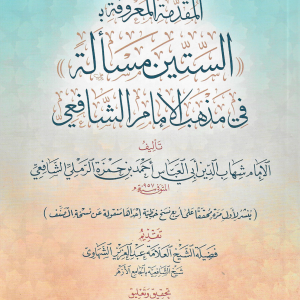 المقدمة المعروفة بـ
((الستين مسألة))
في مذهب الإمام الشافعي
تأليف
الإمام شهاب الدين أبي العباس أحمد بن حمزة الرملي الشافعي
المتوفى سنة ٩٥٧ هـ
( ينشر لأول مرة محققا على أربع نسخ خطية إحداها منقولة عن نسخة المصنف )
تقديم
فضيلة الشيخ العلامة عبد العزيز الشهاوي
شيخ الشافعية بالجامع الأزهر
تحقيق وتعليق